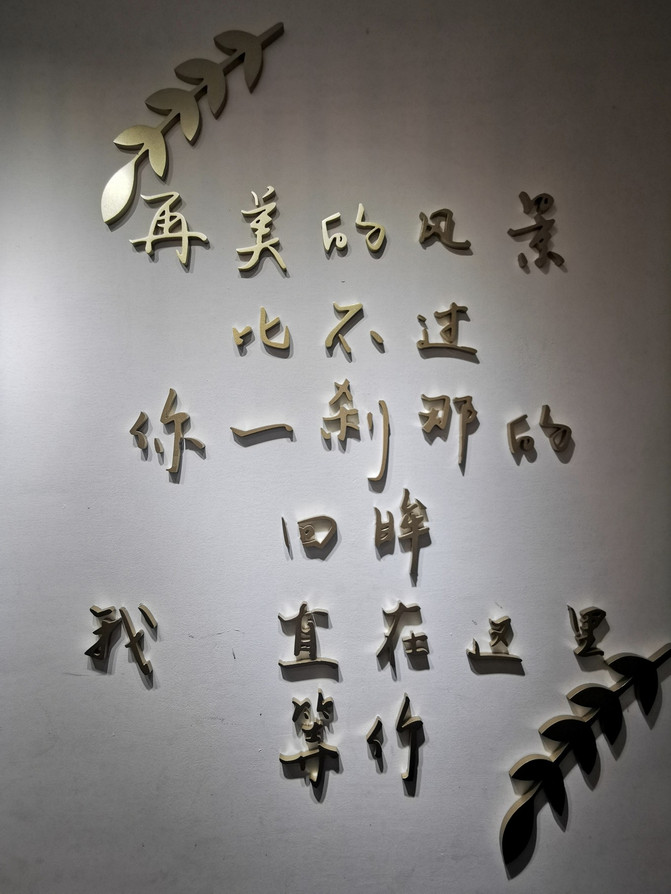 再美的风景
比不过
你一刹那的
回眸
我 直在这里
等你